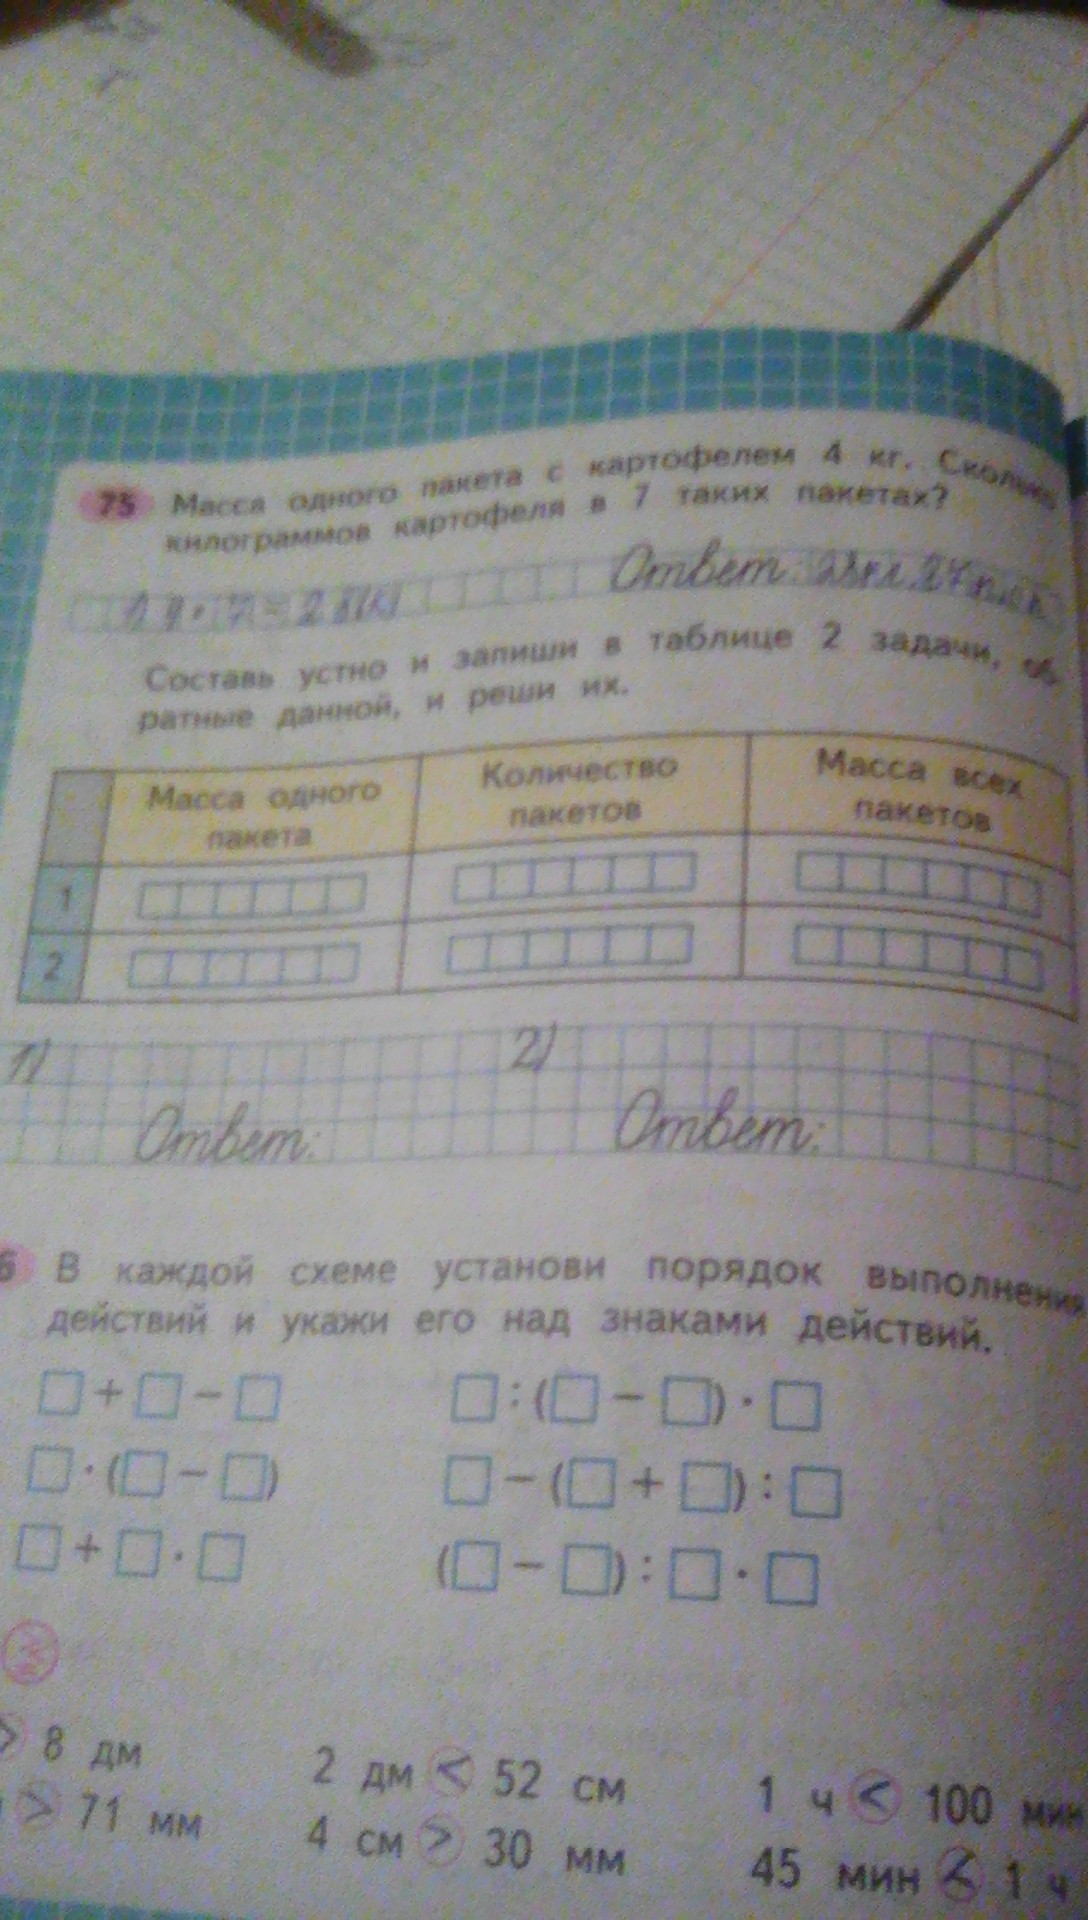 75 Масса одного пакета с картофелем 4 кг. Сколько
килограммов картофеля в 7 таких пакетах?
Ответ:
Составь устно и запиши в таблице 2 задачи, об-
ратные данной, и реши их.
Масса одного пакета
Количество пакетов
Масса всех пакетов
1
2
1) 2)
Ответ: Ответ:
6 В каждой схеме установи порядок выполнения
действий и укажи его над знаками действий.
□ + □ − □ □ : (□ − □) · □
□ · (□ − □) □ − (□ + □) : □
□ + □ · □ (□ − □) : □ · □
> 8 дм 2 дм < 52 см 1 ч < 100 мин
> 71 мм 4 см > 30 мм 45 мин < 1 ч